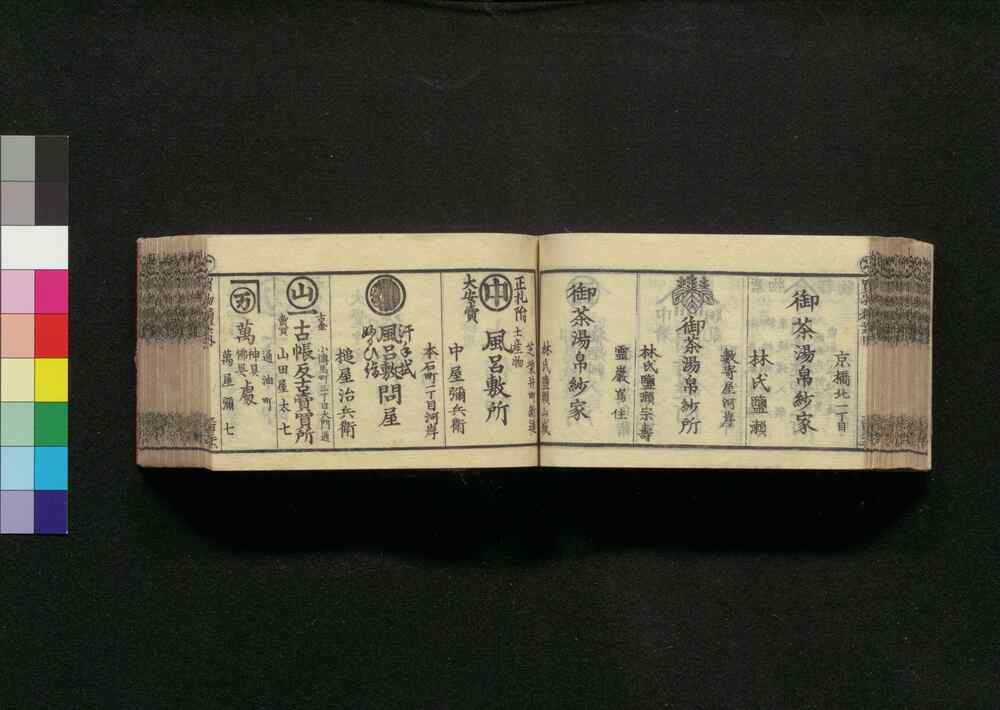 京橋北一丁目
御茶湯帛紗家
林氏鹽瀬
數寄屋河岸
御茶湯帛紗所
林氏鹽瀬宗壽
靈嚴嶌住
御茶湯帛紗家
林氏鹽瀬山城
芝柴井町新道
正札附
土産物
中
風呂敷所
大安賣
中屋彌兵衛
本石町二丁目河岸
汗手拭
風呂敷問屋
槌屋治兵衛
小傳馬町三丁目大門通
山
古帳反古賣買所
山田屋太七
通油町
万
萬
神具
佛具
處
萬屋彌七